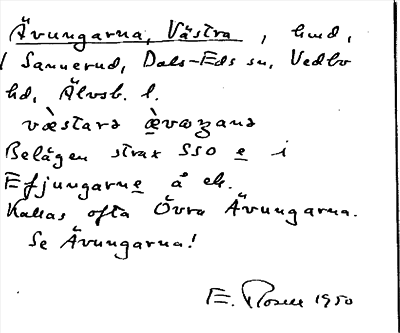 Ävungarna, Västra, hmd,
Sannerud, Dals-Eds sn, Vedbo
hd, Älvsb. l.
væ̀stara æ̀vaʒana
Belägen strax SSO e i
Efjungarne å ek.
Kallas ofta Övra Ävungarna.
Se Ävungarna!
E. Rosell 1950